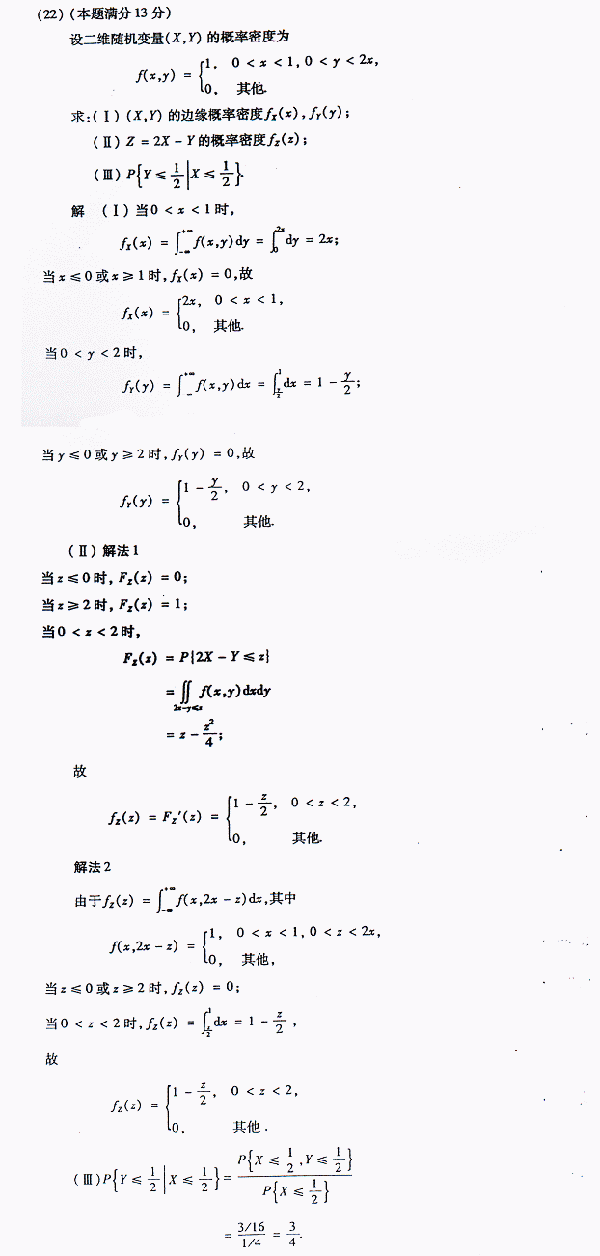 (22)(本题满分13分)
设二维随机变量(X,Y)的概率密度为
f(x,y) = {1, 0 < x < 1, 0 < y < 2x,
0, 其他.
求:(Ⅰ)(X,Y)的边缘概率密度f_X(x),f_Y(y);
(Ⅱ)Z = 2X - Y的概率密度f_Z(z);
(Ⅲ)P{Y ≤ 1/2 | X ≤ 1/2}
解 (Ⅰ)当0 < x < 1时,
f_X(x) = ∫_{-∞}^{+∞} f(x,y)dy = ∫_0^{2x} dy = 2x;
当x ≤ 0或x ≥ 1时,f_X(x) = 0,故
f_X(x) = {2x, 0 < x < 1,
0, 其他.
当0 < y < 2时,
f_Y(y) = ∫_{-}^{+∞} f(x,y)dx = ∫_{y/2}^1 dx = 1 - y/2;
当y ≤ 0或y ≥ 2时,f_Y(y) = 0,故
f_Y(y) = {1 - y/2, 0 < y < 2,
0, 其他.
(Ⅱ)解法1
当z ≤ 0时,F_Z(z) = 0;
当z ≥ 2时,F_Z(z) = 1;
当0 < z < 2时,
F_Z(z) = P{2X - Y ≤ z}
= ∬_{2x-y≤z} f(x,y)dxdy
= z - z²/4;
故
f_Z(z) = F_Z′(z) = {1 - z/2, 0 < z < 2,
0, 其他.
解法2
由于f_Z(z) = ∫_{-∞}^{+∞} f(x,2x - z)dx,其中
f(x,2x - z) = {1, 0 < x < 1, 0 < z < 2x,
0, 其他,
当z ≤ 0或z ≥ 2时,f_Z(z) = 0;
当0 < z < 2时,f_Z(z) = ∫_{z/2}^1 dx = 1 - z/2,
故
f_Z(z) = {1 - z/2, 0 < z < 2,
0. 其他.
(Ⅲ)P{Y ≤ 1/2 | X ≤ 1/2} = P{X ≤ 1/2, Y ≤ 1/2} / P{X ≤ 1/2}
= (3/16)/(1/4) = 3/4.